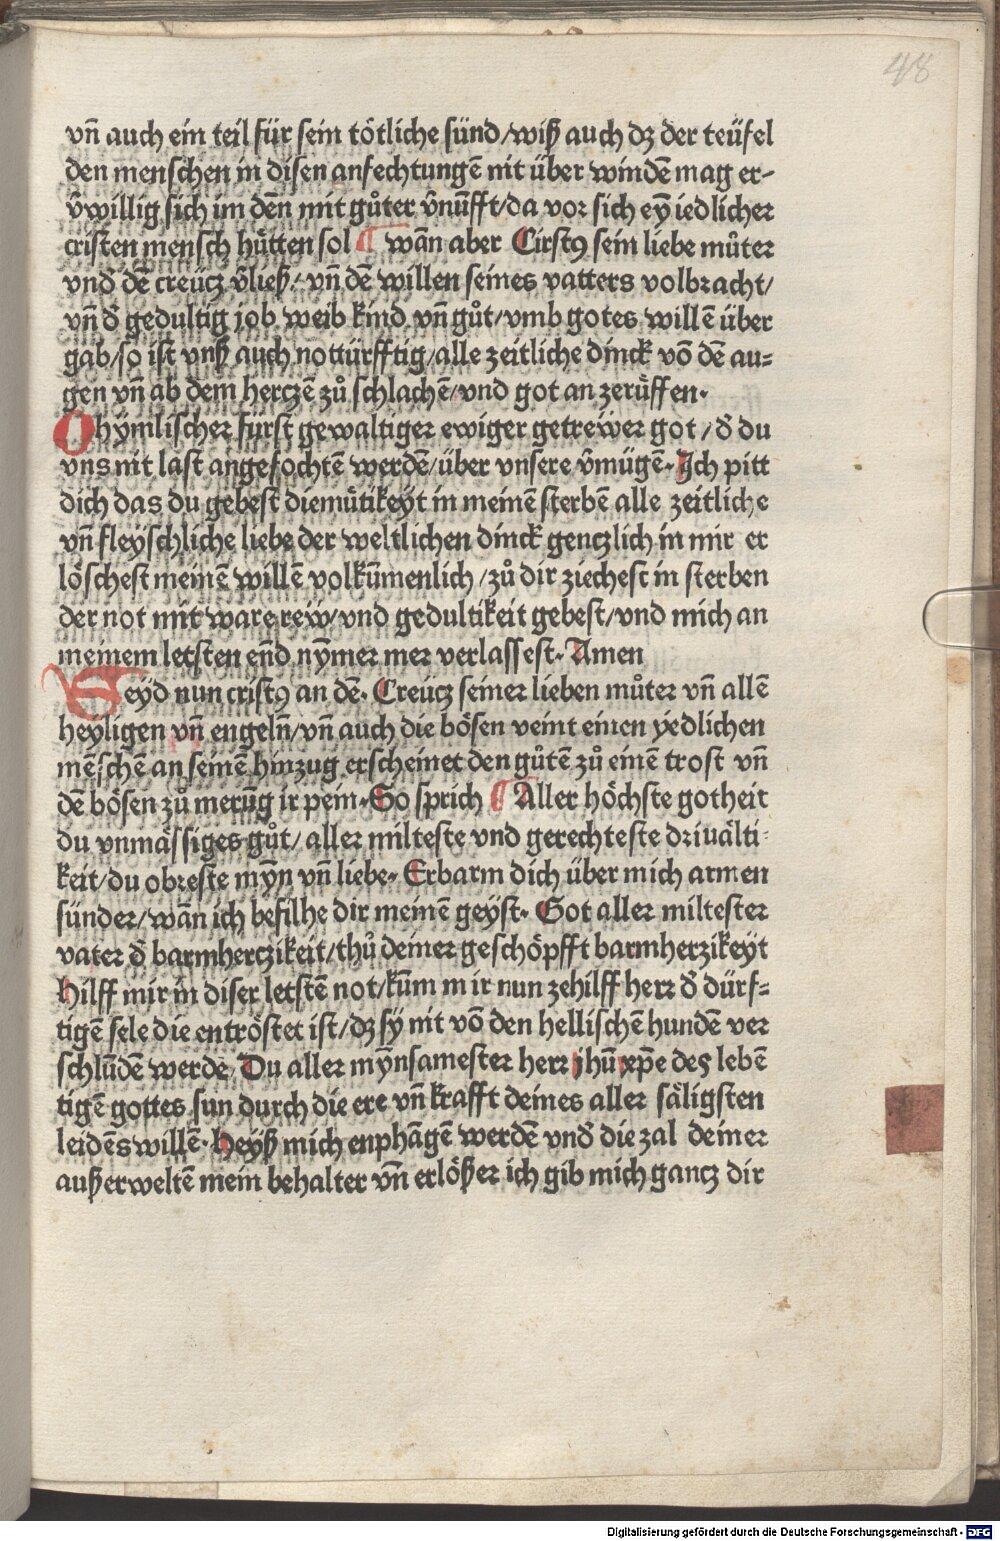 48
vn̄ auch ein teil für sein tötliche sünd/wiß auch dz der teüfel
den menschen in disen anfechtungē nit über windē mag er-
v̄willig sich im dēn mit gůter v̄nūfft/da vor sich eÿ iedlicher
cristen mensch hütten sol ¶ wān aber Cirstꝯ sein liebe můter
vnd dē creücz v̄ließ/ vn̄ dē willen seines vatters volbracht/
vn̄ d̄ gedultig job weib kind vn̄ gůt/vmb gotes willē über
gab/so ist vnß auch notturfftig/alle zeitliche dinck vō dē au=
gen vn̄ ab dem herczē zů schlachē/vnd got an zerůffen.
O hÿmlischer fürst gewaltiger ewiger getrewer got/d̄ du
vns nit last angefochtē werdē/über vnsere v̄mügē. Ich pitt
dich das du gebest diemütikeÿt in meinē sterbē alle zeitliche
vn̄ fleÿschliche liebe der weltlichen dinck genczlich in mir er
löschest meinē willē volkūmenlich/zů dir ziechest in sterben
der not mit ware rew/vnd gedultikeit gebest/vnd mich an
meinem letsten end nÿmer mer verlassest. Amen
Seÿd nun cristꝯ an dē. Creücz seiner lieben můter vn̄ allē
heyligen vn̄ engeln̄/vn̄ auch die bösen veint einen ÿedlichen
mēschē an seinē hinzug erscheinet den gůtē zů einē trost vn̄
dē bösen zů merūg ir pein. So sprich ¶ Aller höchste gotheit
du vnmässiges gůt/ aller milteste vnd gerechteste driuälti-
keit/du obreste mÿn vn̄ liebe. Erbarm dich über mich armen
sünder/wān ich befilhe dir meinē geÿst. Got aller miltester
vater d̄ barmherczikeit/thů deiner geschöpfft barmherzikeÿt
hilff mir in diser letstē not/kūm mir nun zehilff herr d̄ dürf=
tigē sele die entröstet ist/dz sÿ nit vō den hellischē hundē ver
schlūdē werde. Du aller mÿnsamester herr jhū xp̄e des lebē
tigē gottes sun durch die ere vn̄ krafft deines aller säligsten
leidēs willē. Heÿß mich enphāgē werdē vnd die zal deiner
außerweltē mein behalter vn̄ erlößer ich gib mich gancz dir
Digitalisierung gefördert durch die Deutsche Forschungsgemeinschaft - DFG